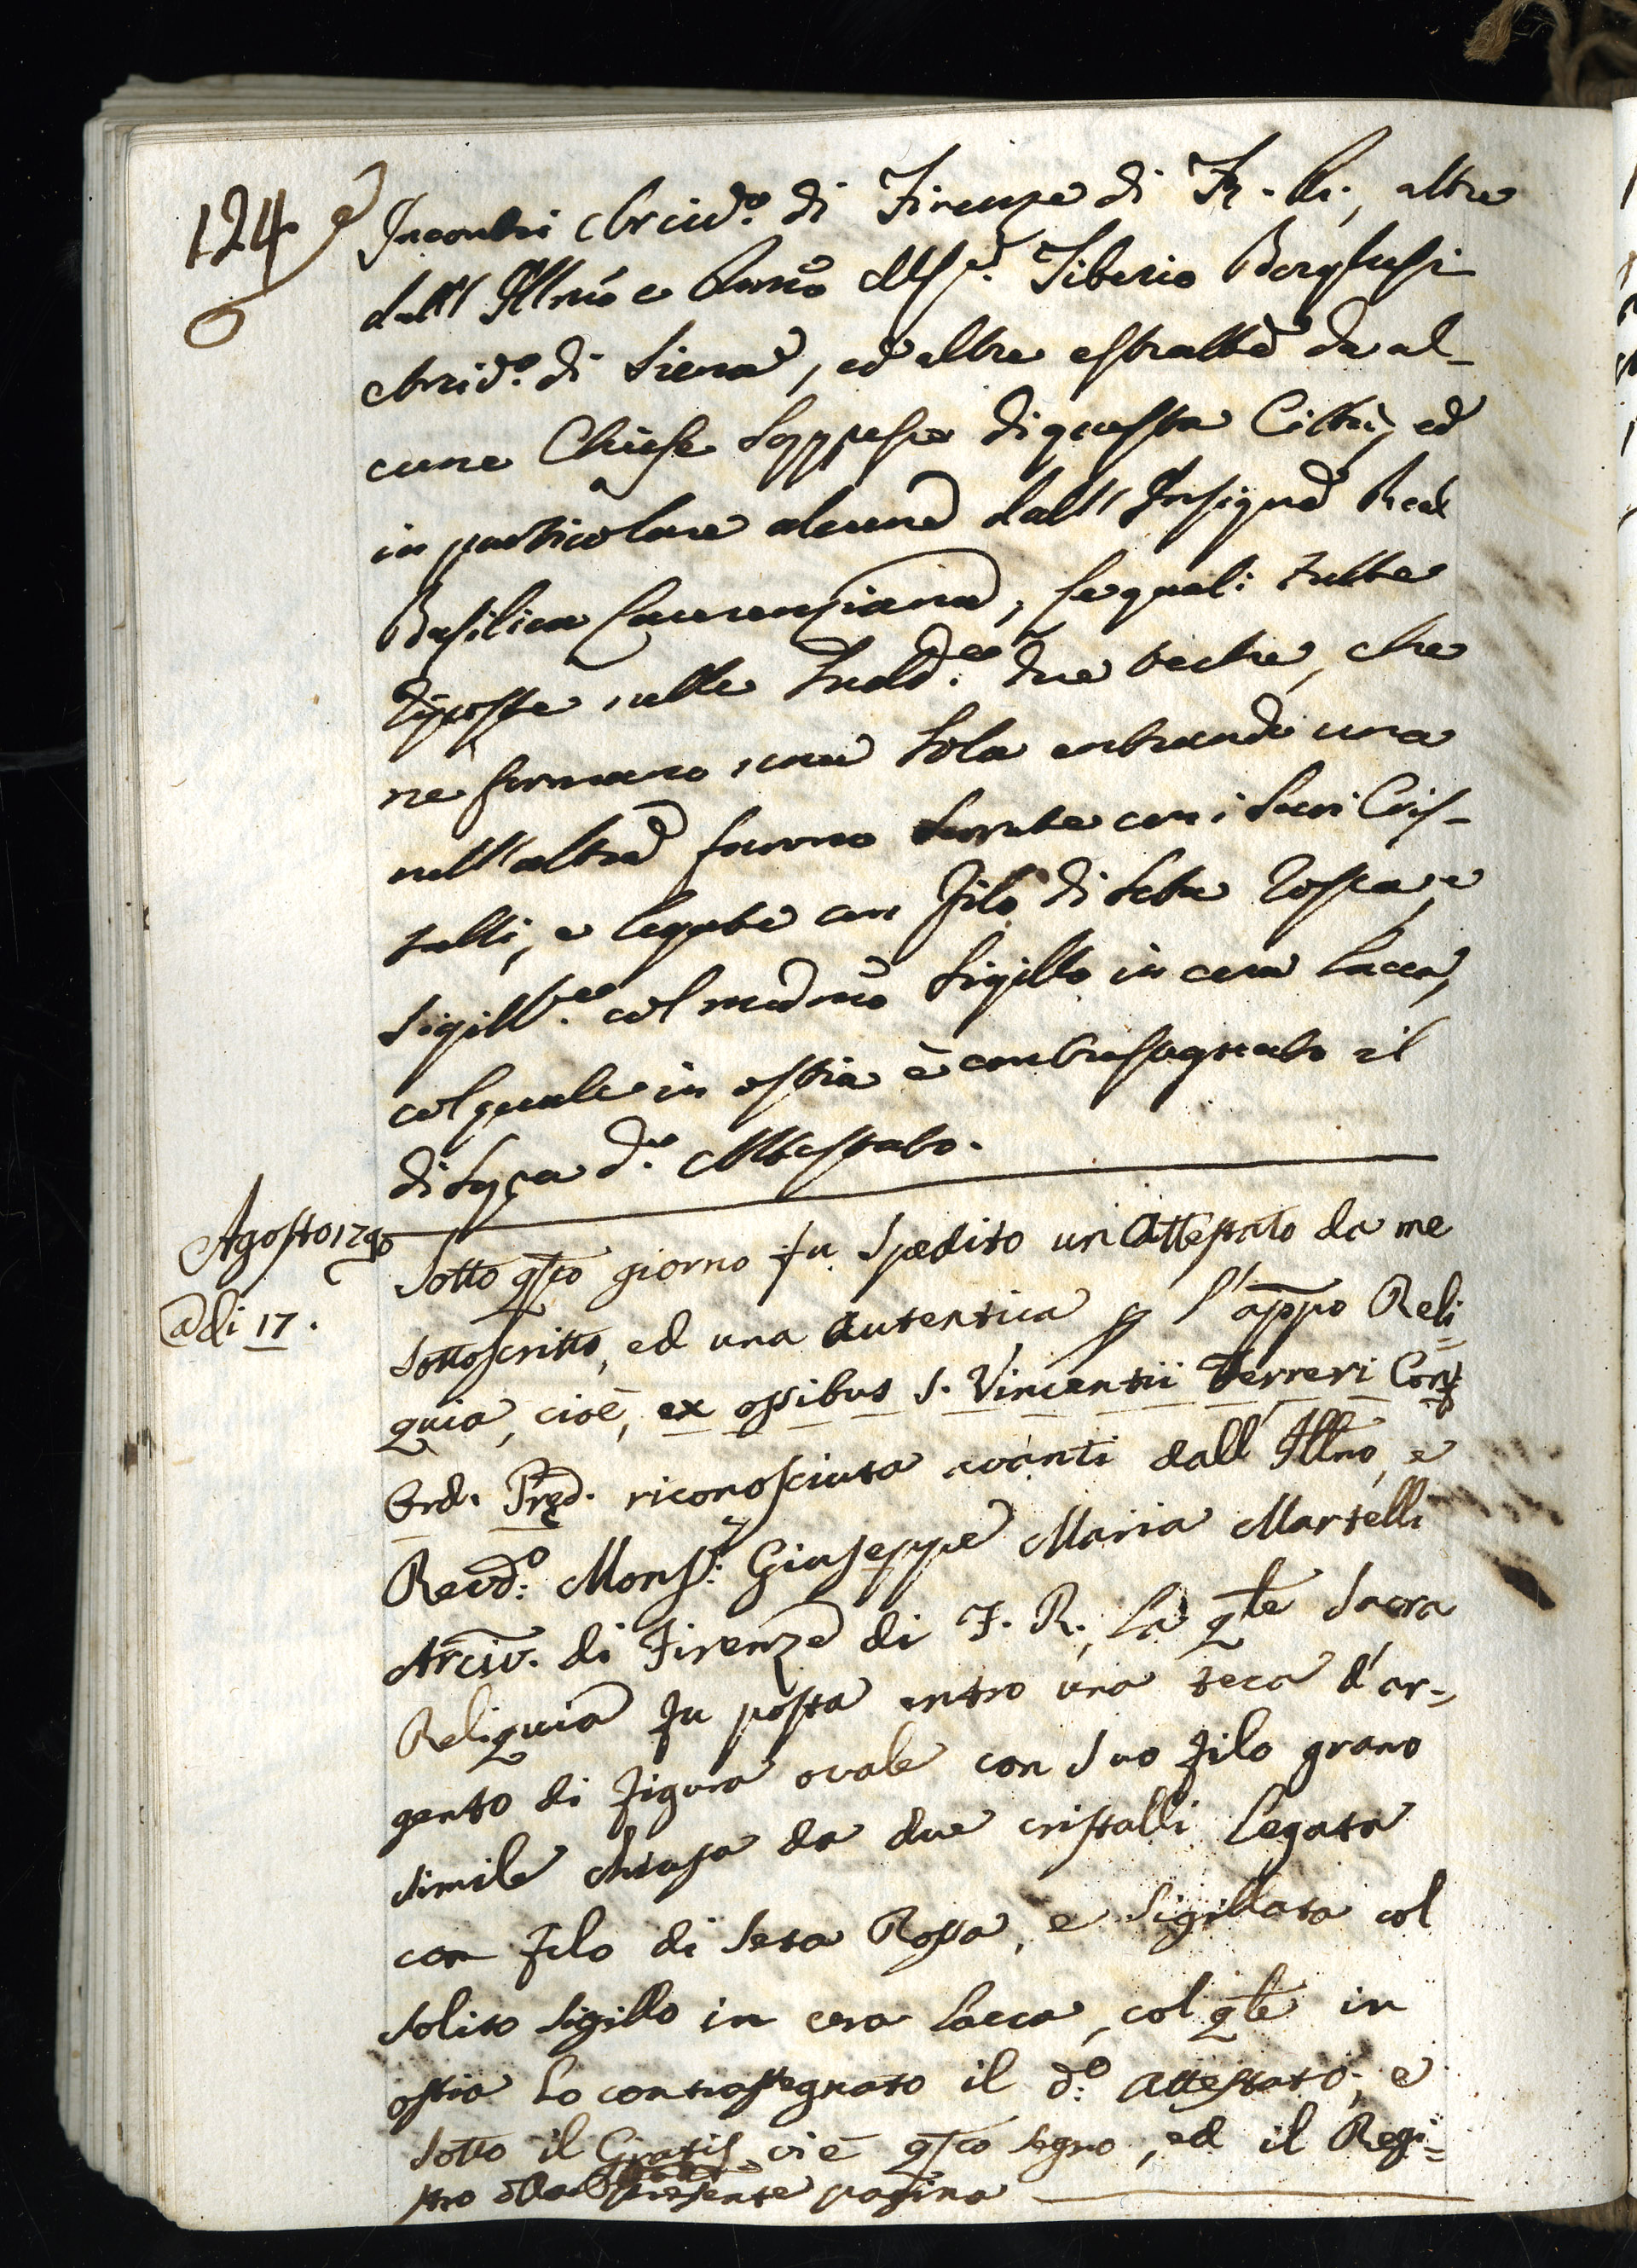 124.
Incontri Arciv.º di Firenze di F. R., altre
dall'Illmo e Rmo Msr. Tiberio Borghesi
Arcid.º di Siena, ed altre estratte da al-
cune Chiese Soppresse di questa Città, ed
in particolare alcune dall'Insigne Real
Basilica Laurenziana, le quali tutte
disposte nelle Sudd.e due teche, che
ne formano una sola entrando una
nell'altra furono serrate con i suoi Cris-
talli, e legate con filo di seta rossa, e
Sigill.e col medmo Sigillo in cera lacca,
col quale in ostia è contrassegnato il
di sopra d.º Attestato.
Agosto 1790
adi 17.
Sotto qsto giorno fu spedito un Attestato da me
sottoscritto, ed una Autentica p l'appo Reli=
quia, cioè, ex ossibus S. Vincentii Ferreri Conf.
Ord. Pred. riconosciuta avanti dall'Illmo, e
Revd.º Monsr. Giuseppe Maria Martelli
Arciv. di Firenze di F. R., la qle Sacra
Reliquia fu posta entro una teca d'ar=
gento di figura ovale con suo filo grano
simile chiusa da due cristalli legata
con filo di Seta Rossa, e Sigillata col
solito sigillo in cera lacca, col qle in
ostia ho contrassegnato il d.º Attestato, e
sotto il Gratis vi è qsto segno, ed il Regi=
stro della presente pagina